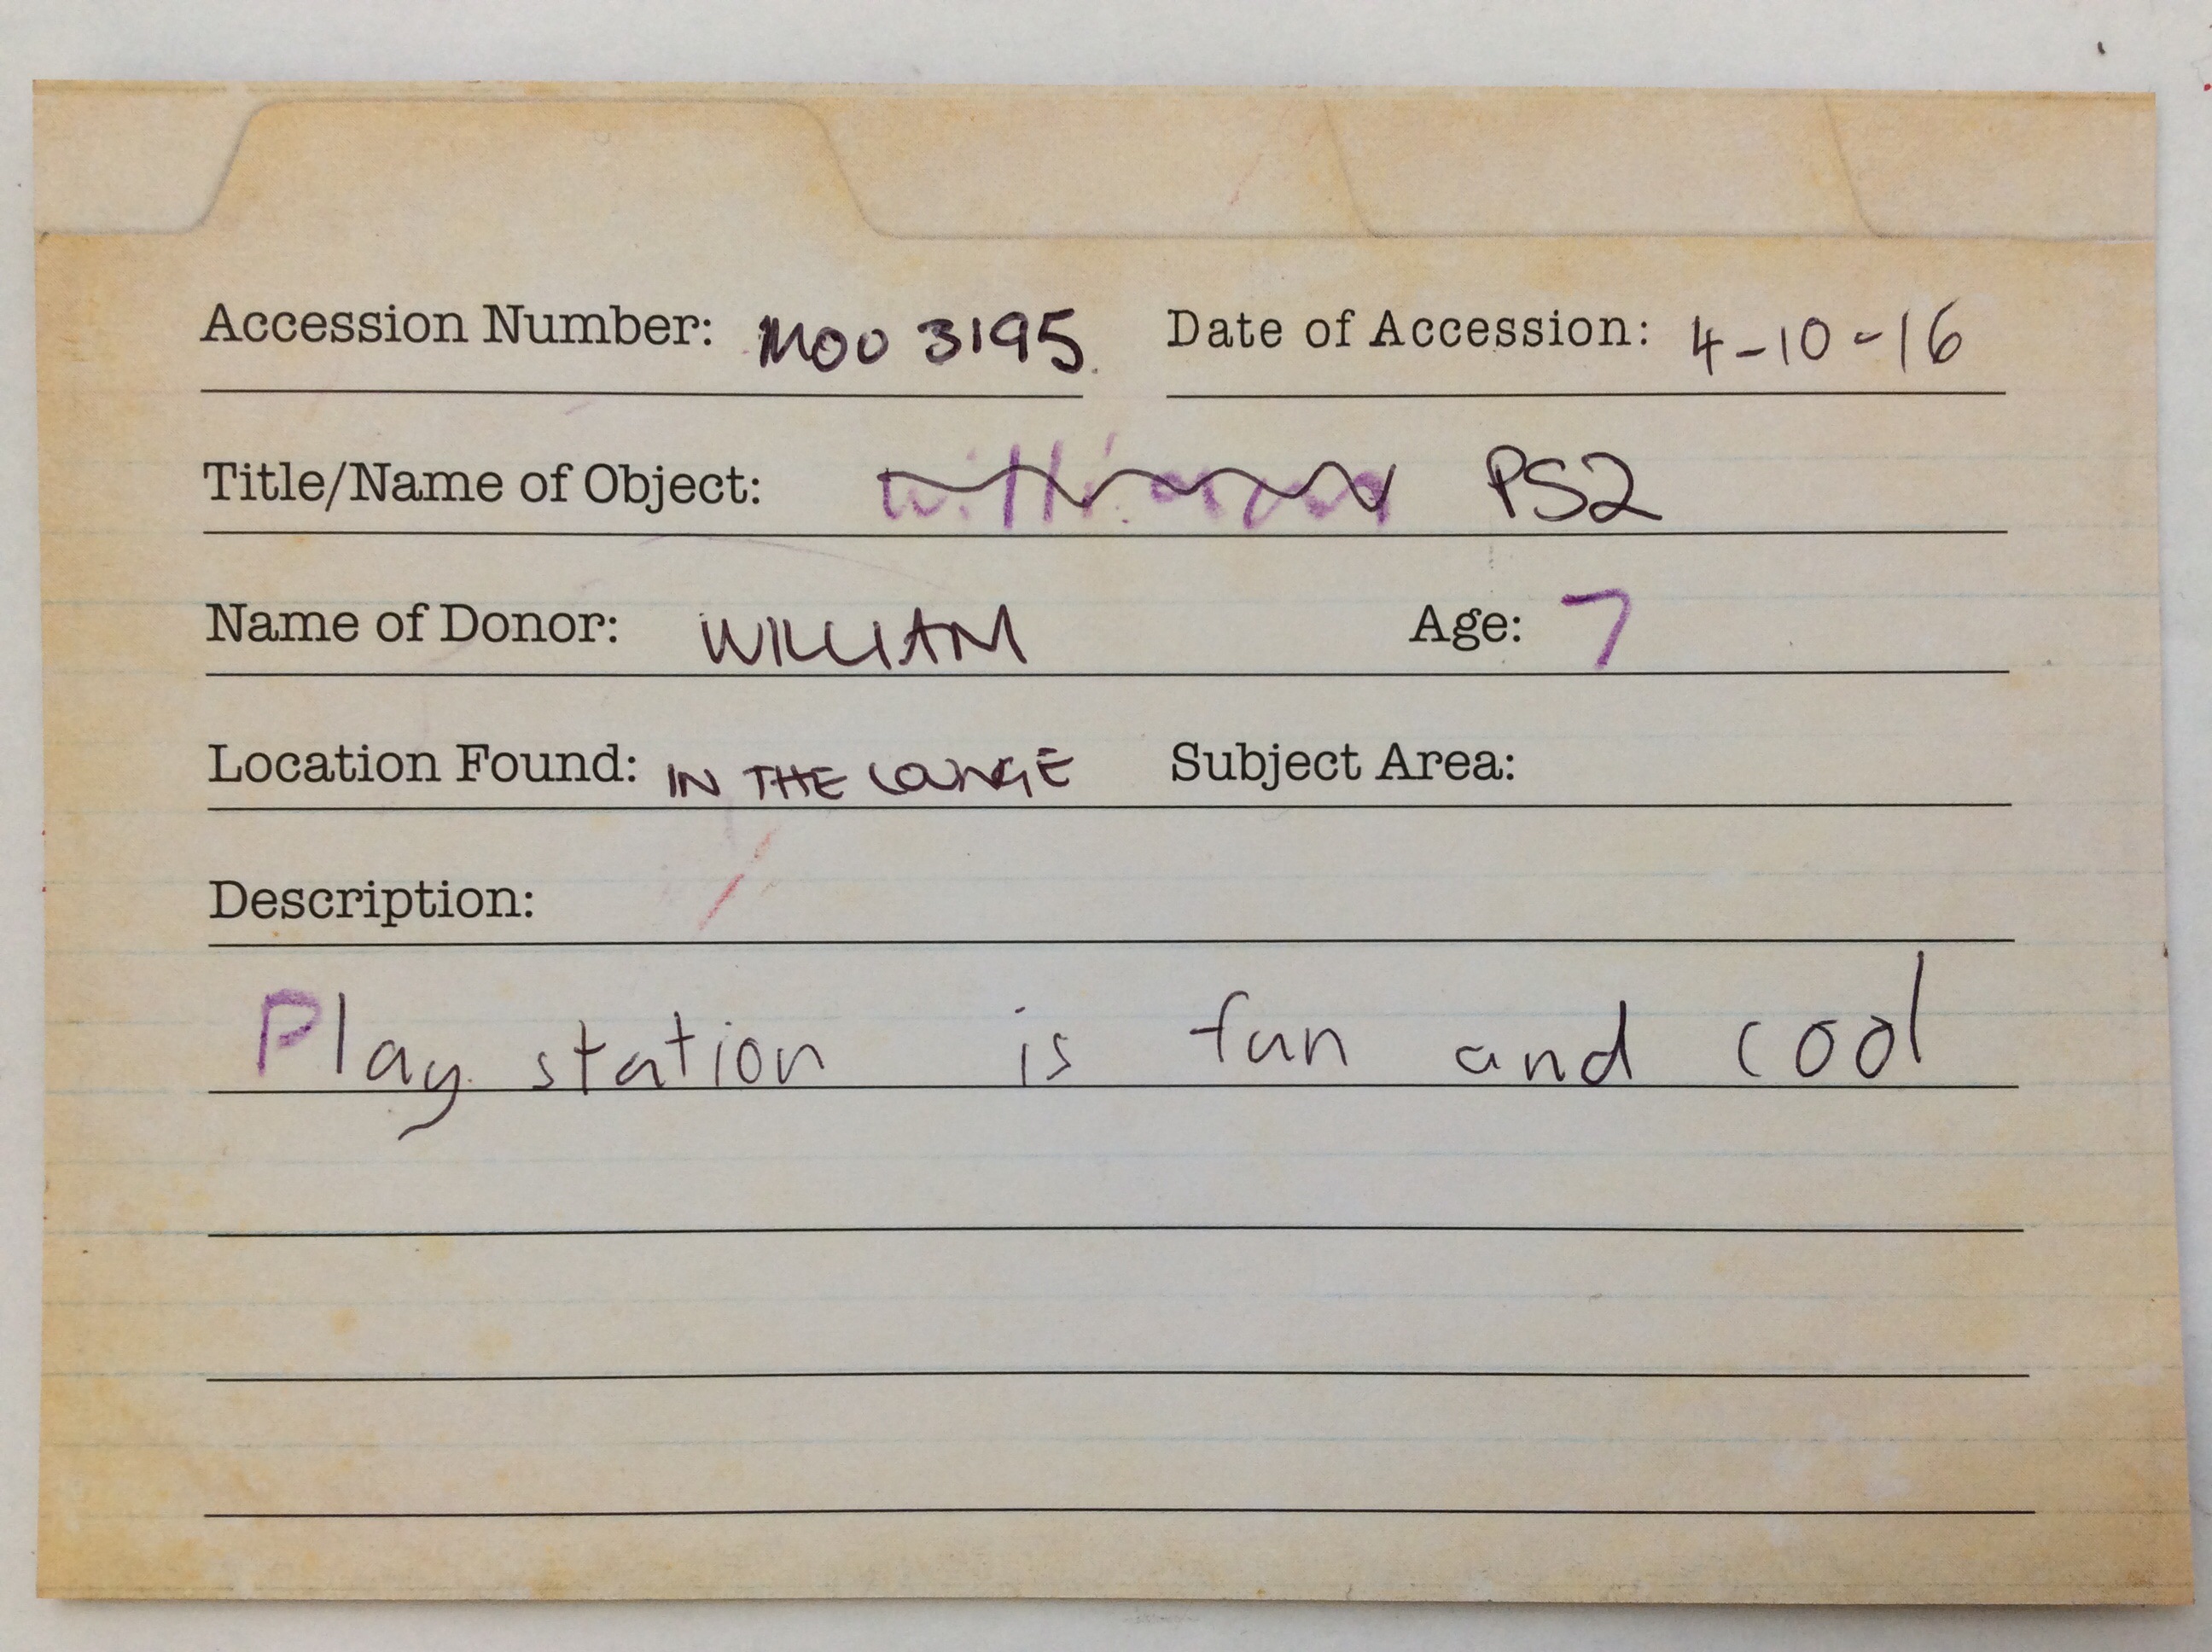 Accession Number: MOO 3195. Date of Accession: 4-10-16
Title/Name of Object: william PS2
Name of Donor: WILLIAM Age: 7
Location Found: IN THE LOUNGE Subject Area:
Description:
Play station is fun and cool